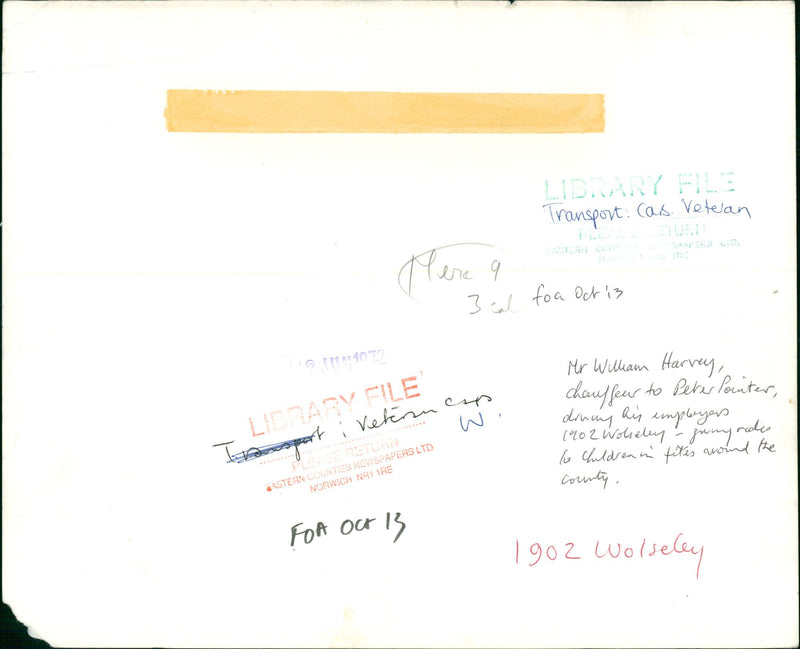 LIBRARY FILE
Transport: Cars. Veteran
PLEASE RETURN
EASTERN COUNTIES NEWSPAPERS LTD.
Merc 9
3 col foa Oct '13
1972
LIBRARY FILE
Transport: Veteran cars
W.
PLEASE RETURN
EASTERN COUNTIES NEWSPAPERS LTD
NORWICH NR1 1RE
Mr William Harvey,
chauffeur to Peter Pointer,
driving his employers
1902 Wolseley – giving rides
to children in fetes around the
county.
FOA OCT 13
1902 Wolseley